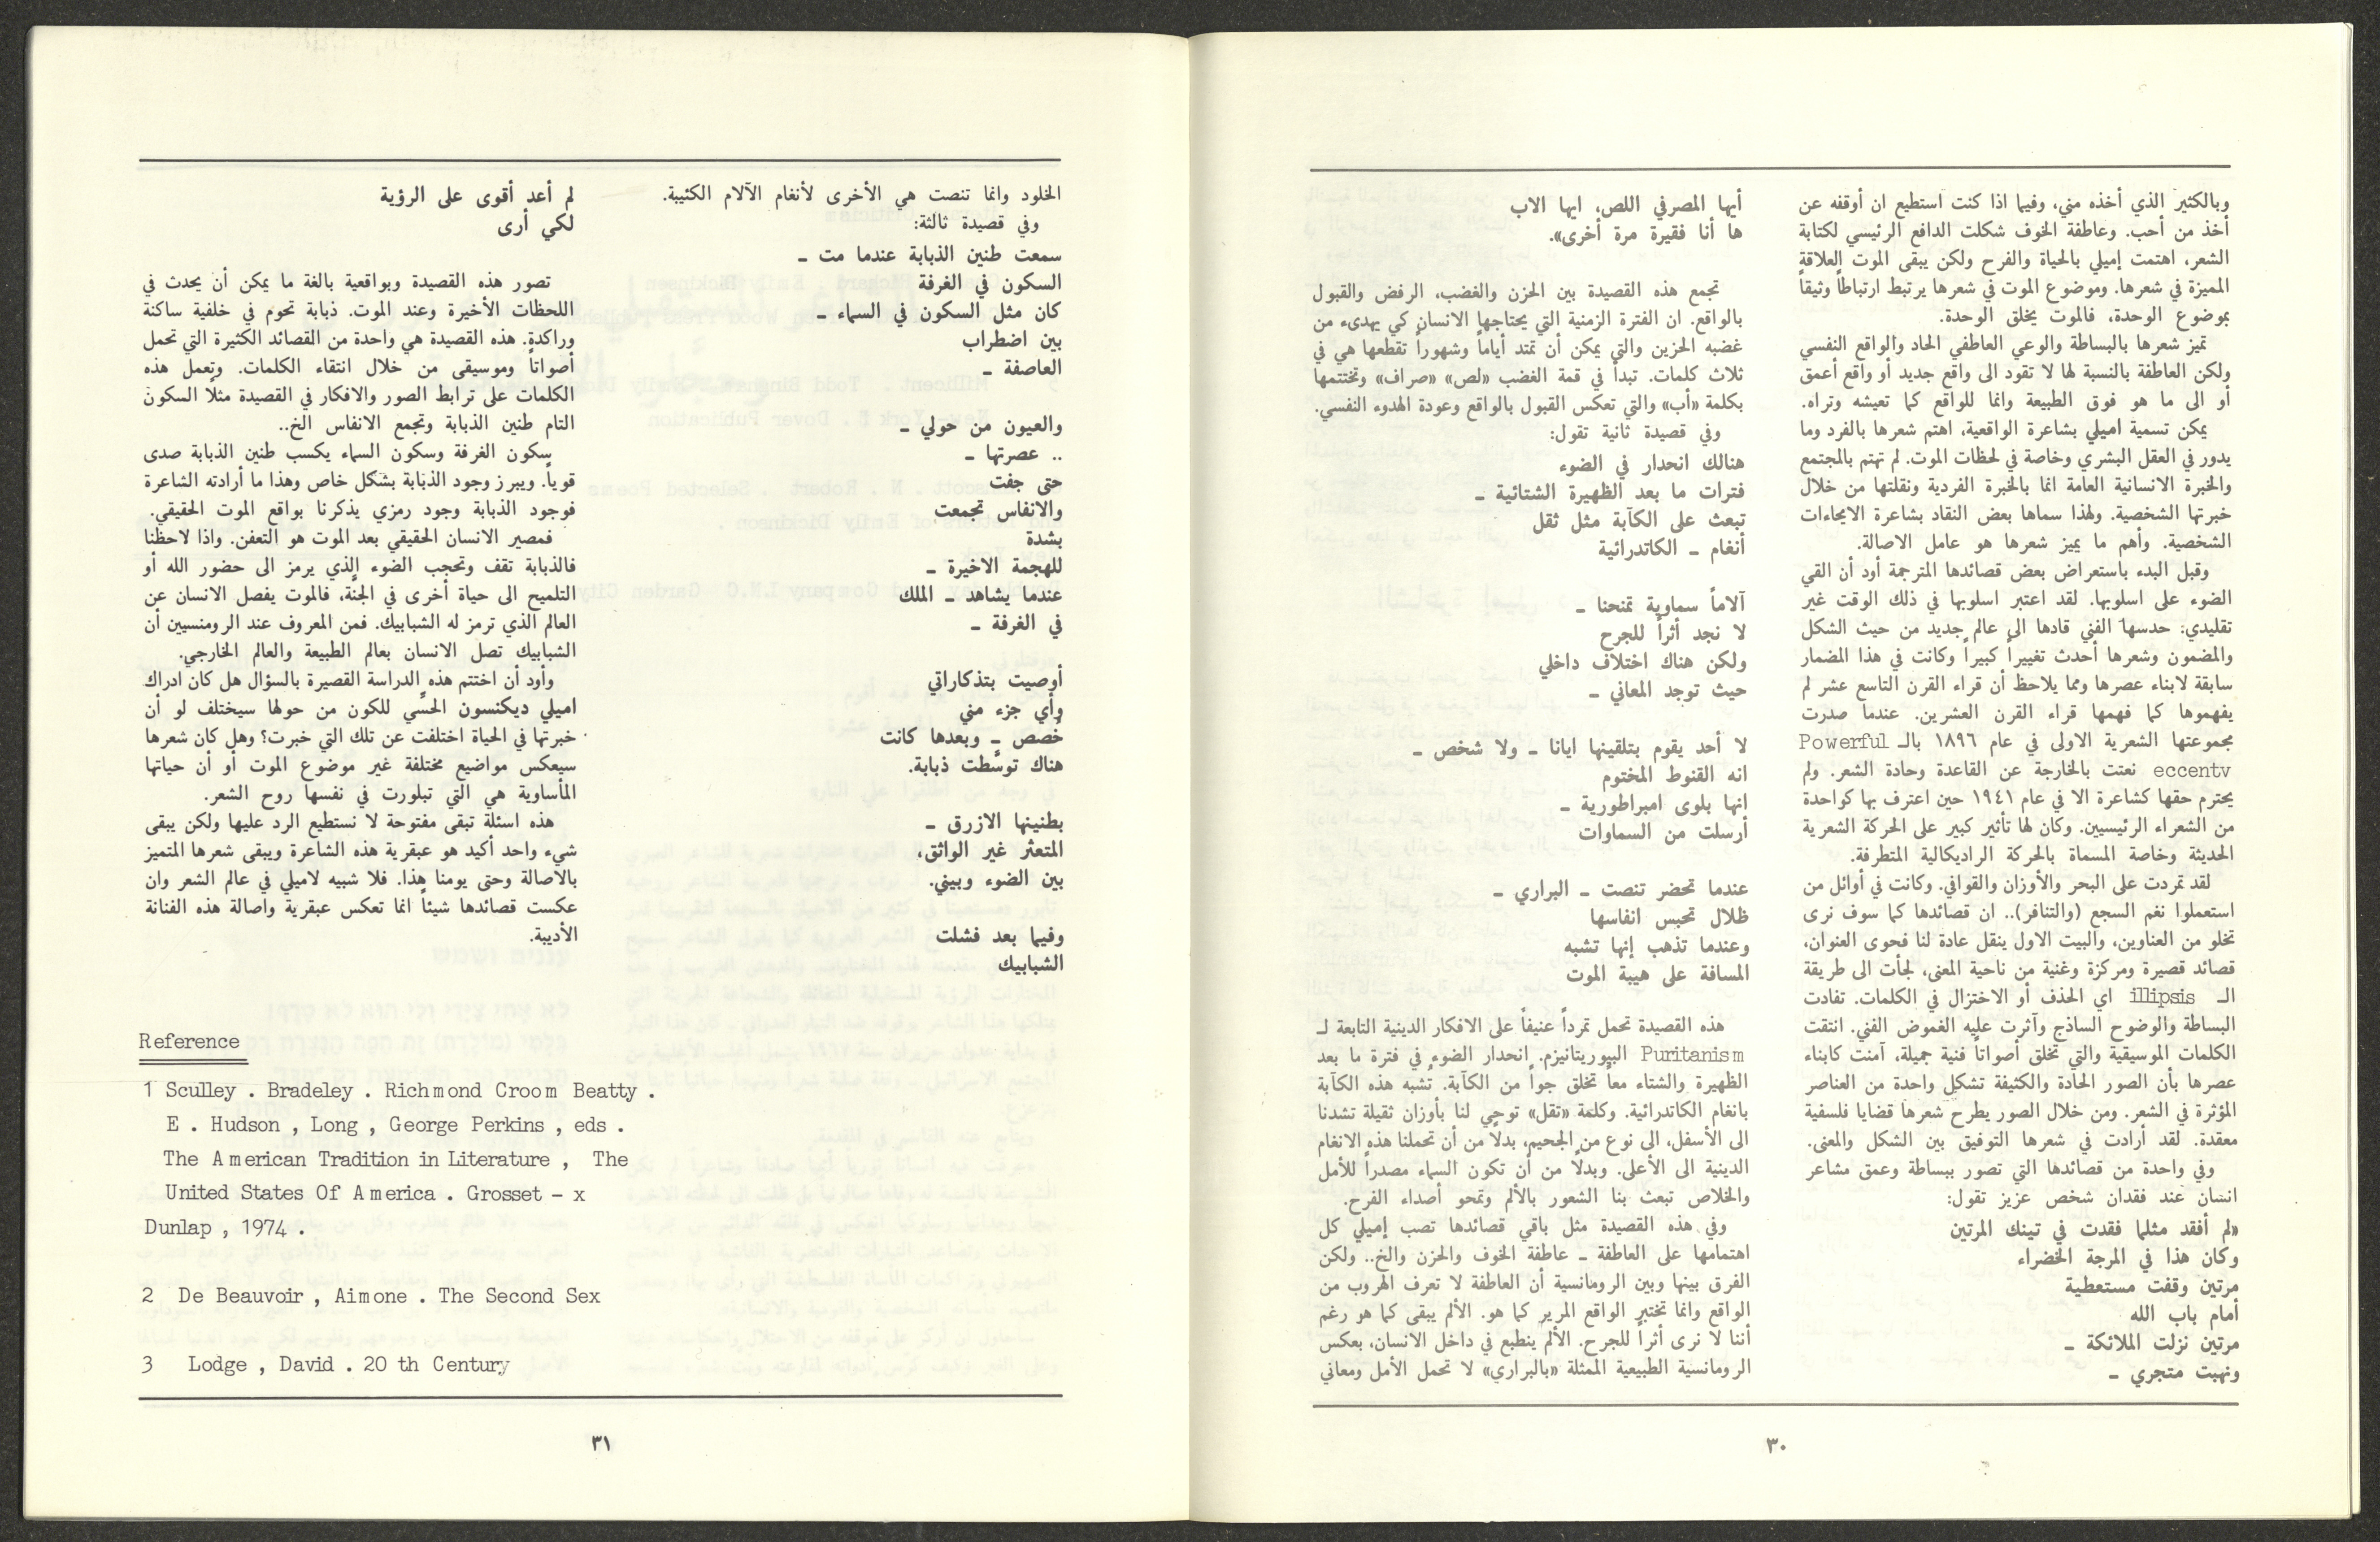 وبالكثير الذي أخذه مني، وفيما اذا كنت استطيع ان أوقفه عن
أخذ من أحب. وعاطفة الخوف شكلت الدافع الرئيسي لكتابة
الشعر، اهتمت إميلي بالحياة والفرح ولكن يبقى الموت العلاقة
المميزة في شعرها. وموضوع الموت في شعرها يرتبط ارتباطاً وثيقاً
بموضوع الوحدة، فالموت يخلق الوحدة.
تميز شعرها بالبساطة والوعي العاطفي الحاد والواقع النفسي
ولكن العاطفة بالنسبة لها لا تقود الى واقع جديد أو واقع أعمق
أو الى ما هو فوق الطبيعة وانما للواقع كما تعيشه وتراه.
يمكن تسمية اميلي بشاعرة الواقعية، اهتم شعرها بالفرد وما
يدور في العقل البشري وخاصة في لحظات الموت. لم تهتم بالمجتمع
والخبرة الانسانية العامة انما بالخبرة الفردية ونقلتها من خلال
خبرتها الشخصية. ولهذا سماها بعض النقاد بشاعرة الايحاءات
الشخصية. وأهم ما يميز شعرها هو عامل الاصالة.
وقبل البدء باستعراض بعض قصائدها المترجمة أود أن القي
الضوء على اسلوبها. لقد اعتبر اسلوبها في ذلك الوقت غير
تقليدي: حدسها الفني قادها الى عالم جديد من حيث الشكل
والمضمون وشعرها أحدث تغييراً كبيراً وكانت في هذا المضمار
سابقة لابناء عصرها ومما يلاحظ أن قراء القرن التاسع عشر لم
يفهموها كما فهمها قراء القرن العشرين. عندما صدرت
مجموعتها الشعرية الاولى في عام ١٨٩٦ بالـ Powerful
eccentv نعتت بالخارجة عن القاعدة وحادة الشعر. ولم
يحترم حقها كشاعرة الا في عام ١٩٤١ حين اعترف بها كواحدة
من الشعراء الرئيسيين. وكان لها تأثير كبير على الحركة الشعرية
الحديثة وخاصة المسماة بالحركة الراديكالية المتطرفة.
لقد تمردت على البحر والأوزان والقوافي. وكانت في أوائل من
استعملوا نغم السجع (والتنافر).. ان قصائدها كما سوف نرى
تخلو من العناوين، والبيت الاول ينقل عادة لنا فحوى العنوان،
قصائد قصيرة ومركزة وغنية من ناحية المعنى، لجأت الى طريقة
الـ illipsis اي الحذف أو الاختزال في الكلمات. تفادت
البساطة والوضوح الساذج وآثرت عليه الغموض الفني. انتقت
الكلمات الموسيقية والتي تخلق أصواتاً فنية جميلة، آمنت كابناء
عصرها بأن الصور الحادة والكثيفة تشكل واحدة من العناصر
المؤثرة في الشعر. ومن خلال الصور يطرح شعرها قضايا فلسفية
معقدة. لقد أرادت في شعرها التوفيق بين الشكل والمعنى.
وفي واحدة من قصائدها التي تصور ببساطة وعمق مشاعر
انسان عند فقدان شخص عزيز تقول:
«لم أفقد مثلما فقدت في تينك المرتين
وكان هذا في المرجة الخضراء
مرتين وقفت مستعطية
أمام باب الله
مرتين نزلت الملائكة ـ
ونهبت متجري ـ
أيها المصرفي اللص، ايها الاب
ها أنا فقيرة مرة أخرى».
تجمع هذه القصيدة بين الحزن والغضب، الرفض والقبول
بالواقع. ان الفترة الزمنية التي يحتاجها الانسان كي يهدىء من
غضبه الحزين والتي يمكن أن تمتد أياماً وشهوراً تقطعها هي في
ثلاث كلمات. تبدأ في قمة الغضب «لص» «صراف» وتختتمها
بكلمة «أب» والتي تعكس القبول بالواقع وعودة الهدوء النفسي.
وفي قصيدة ثانية تقول:
هنالك انحدار في الضوء
فترات ما بعد الظهيرة الشتائية ـ
تبعث على الكآبة مثل ثقل
أنغام ـ الكاتدرائية
آلاماً سماوية تمنحنا ـ
لا نجد أثراً للجرح
ولكن هناك اختلاف داخلي
حيث توجد المعاني ـ
لا أحد يقوم بتلقينها ايانا ـ ولا شخص ـ
انه القنوط المختوم
انها بلوى امبراطورية ـ
أرسلت من السماوات
عندما تحضر تنصت ـ البراري ـ
ظلال تحبس انفاسها
وعندما تذهب إنها تشبه
المسافة على هيبة الموت
هذه القصيدة تحمل تمرداً عنيفاً على الافكار الدينية التابعة لـ
Puritanism البيوريتانيزم. انحدار الضوء في فترة ما بعد
الظهيرة والشتاء معاً تخلق جواً من الكآبة. تُشبه هذه الكآبة
بانغام الكاتدرائية. وكلمة «ثقل» توحي لنا بأوزان ثقيلة تشدنا
الى الأسفل، الى نوع من الجحيم، بدلاً من أن تحملنا هذه الانغام
الدينية الى الأعلى. وبدلاً من أن تكون السماء مصدراً للأمل
والخلاص تبعث بنا الشعور بالألم وتمحو أصداء الفرح.
وفي هذه القصيدة مثل باقي قصائدها تصب إميلي كل
اهتمامها على العاطفة ـ عاطفة الخوف والحزن والخ.. ولكن
الفرق بينها وبين الرومانسية أن العاطفة لا تعرف الهروب من
الواقع وانما تختبر الواقع المرير كما هو. الألم يبقى كما هو رغم
أننا لا نرى أثراً للجرح. الألم ينطبع في داخل الانسان، بعكس
الرومانسية الطبيعية الممثلة «بالبراري» لا تحمل الأمل ومعاني
٣٠
الخلود وانما تنصت هي الأخرى لأنغام الآلام الكثيبة.
وفي قصيدة ثالثة:
سمعت طنين الذبابة عندما مت ـ
السكون في الغرفة
كان مثل السكون في السماء ـ
بين اضطراب
العاصفة ـ
والعيون من حولي ـ
.. عصرتها ـ
حتى جفت
والانفاس تجمعت
بشدة
للهجمة الاخيرة ـ
عندما يشاهد ـ الملك
في الغرفة ـ
أوصيت بتذكاراتي
وأي جزء مني
خُصص ـ وبعدها كانت
هناك توسّطت ذبابة.
بطنينها الازرق ـ
المتعثر غير الواثق،
بين الضوء وبيني.
وفيما بعد فشلت
الشبابيك
لم أعد أقوى على الرؤية
لكي أرى
تصور هذه القصيدة وبواقعية بالغة ما يمكن أن يحدث في
اللحظات الأخيرة وعند الموت. ذبابة تحوم في خلفية ساكنة
وراكدة. هذه القصيدة هي واحدة من القصائد الكثيرة التي تحمل
أصواتاً وموسيقى من خلال انتقاء الكلمات. وتعمل هذه
الكلمات على ترابط الصور والافكار في القصيدة مثلًا السكون
التام طنين الذبابة وتجمع الانفاس الخ..
سكون الغرفة وسكون السماء يكسب طنين الذبابة صدى
قوياً. ويبرز وجود الذبابة بشكل خاص وهذا ما أرادته الشاعرة
فوجود الذبابة وجود رمزي يذكرنا بواقع الموت الحقيقي.
فمصير الانسان الحقيقي بعد الموت هو التعفن. واذا لاحظنا
فالذبابة تقف وتحجب الضوء الذي يرمز الى حضور الله أو
التلميح الى حياة أخرى في الجنّة، فالموت يفصل الانسان عن
العالم الذي ترمز له الشبابيك. فمن المعروف عند الرومنسيين أن
الشبابيك تصل الانسان بعالم الطبيعة والعالم الخارجي.
وأود أن اختتم هذه الدراسة القصيرة بالسؤال هل كان ادراك
اميلي ديكنسون الحسّي للكون من حولها سيختلف لو أن
خبرتها في الحياة اختلفت عن تلك التي خبرت؟ وهل كان شعرها
سيعكس مواضيع مختلفة غير موضوع الموت أو أن حياتها
المأساوية هي التي تبلورت في نفسها روح الشعر.
هذه اسئلة تبقى مفتوحة لا نستطيع الرد عليها ولكن يبقى
شيء واحد أكيد هو عبقرية هذه الشاعرة ويبقى شعرها المتميز
بالاصالة وحتى يومنا هذا. فلا شبيه لاميلي في عالم الشعر وان
عكست قصائدها شيئاً انما تعكس عبقرية واصالة هذه الفنانة
الأديبة.
Reference
1 Sculley . Bradeley . Richmond Croom Beatty .
E . Hudson , Long , George Perkins , eds .
The American Tradition in Literature , The
United States Of America . Grosset - x
Dunlap , 1974 .
2 De Beauvoir , Aimone . The Second Sex
3 Lodge , David . 20 th Century
٣١